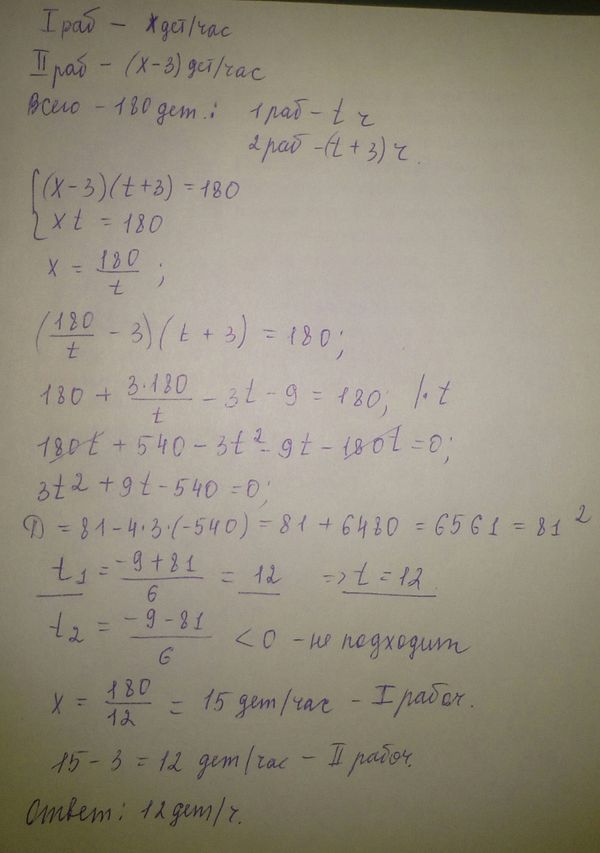 I раб – x дет/час
II раб – (x-3) дет/час
Всего – 180 дет.: 1 раб – t ч
2 раб – (t+3) ч.
(x-3)(t+3) = 180
xt = 180
x = 180/t ;
(180/t - 3)(t+3) = 180;
180 + 3·180/t - 3t - 9 = 180; |· t
180t + 540 - 3t² - 9t - 180t = 0;
3t² + 9t - 540 = 0;
D = 81 - 4·3·(-540) = 81 + 6480 = 6561 = 81²
t₁ = (-9+81)/6 = 12 => t = 12
t₂ = (-9-81)/6 < 0 – не подходит
x = 180/12 = 15 дет/час – I рабоч.
15 - 3 = 12 дет/час – II рабоч.
Ответ: 12 дет/ч.